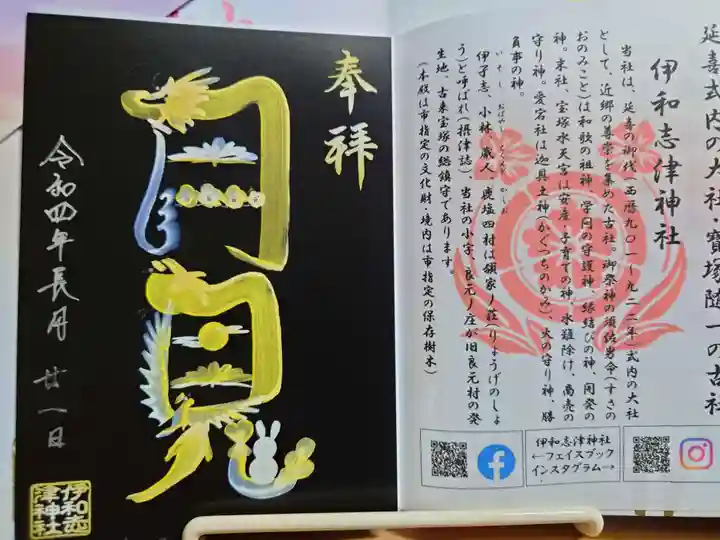 延喜式内の大社 寶塚随一の古社
伊和志津神社
当社は、延喜の御代(西暦九〇一〜九二二年)式内の大社
として、近郷の尊崇を集めた古社。御祭神の須佐男命(すさの
おのみこと)は和歌の祖神、学問の守護神、縁結びの神、開発の
神。末社、宝塚水天宮は安産・子育ての神、水難除け、商売の
守り神。愛宕社は迦具土神(かぐつちのかみ)、火の守り神、勝
負事の神。
いそし おばやし くろんど かしお
伊孑志、小林、蔵人、鹿塩四村は領家ノ荘(りょうげのしょ
う)と呼ばれ(摂津誌)、当社の小字、良元ノ庄が旧良元村の発
生地、古来宝塚の総鎮守であります。
(本殿は市指定の文化財、境内は市指定の保存樹木)
伊和志津神社
←フェイスブック
インスタグラム→
奉拝
月見
令和四年長月廿一日
伊和志
津神社